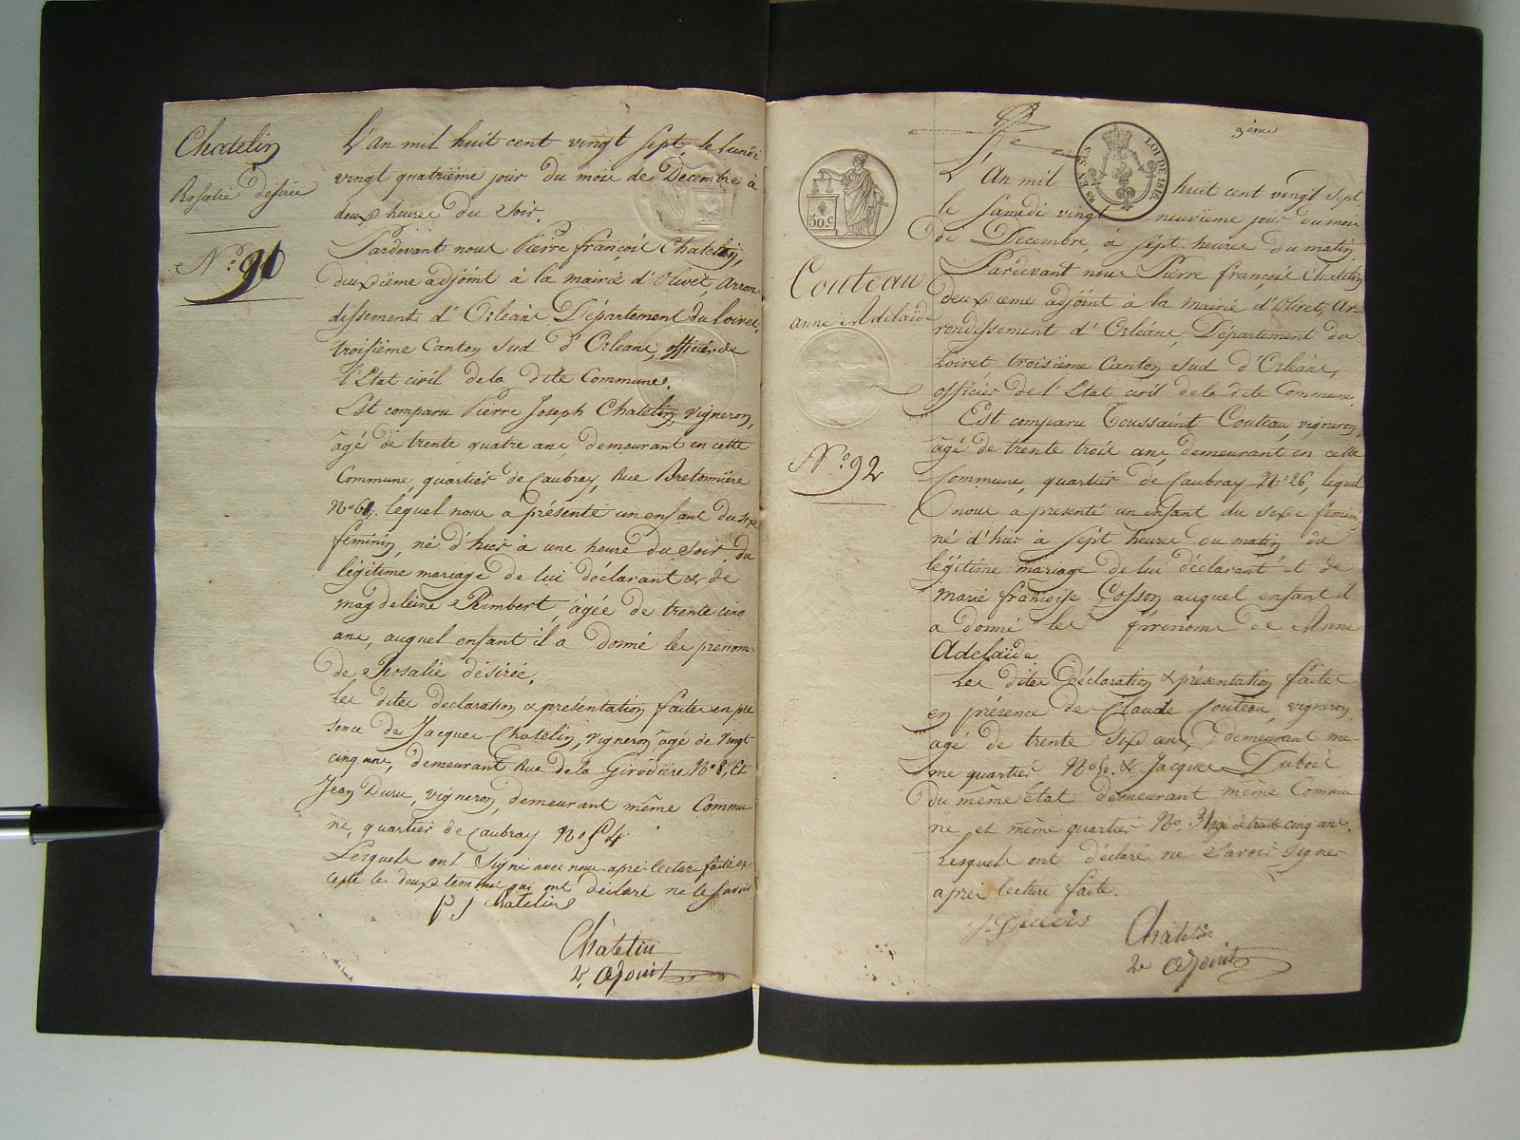 Chatelin
Rosalie désirée
N.º 91
L'An mil huit cent vingt sept le lundi
vingt quatrième jour du mois de Décembre à
deux heures du soir.
Pardevant nous Pierre françois Chatelin,
deuxième adjoint à la mairie d'Olivet, Arron-
dissement d'Orléans Département du Loiret,
troisième Canton sud d'Orléans, officier de
l'Etat civil de la dite Commune.
Est comparu Pierre Joseph Chatelin, vigneron,
âgé de trente quatre ans, demeurant en cette
Commune, quartier de Caubray, Rue Bretonnière
Nº 61, lequel nous a présenté un enfant du sexe
féminin, né d'hier à une heure du soir, du
légitime mariage de lui déclarant & de
magdeleine Rimbert, âgée de trente cinq
ans, auquel enfant il a donné les prénoms
de Rosalie désirée,
Les dites declaration & présentation faites en pré
sence de Jacques Chatelin, vigneron âgé de vingt
cinq ans, demeurant Rue de la Girodière Nº 8, Et
Jean Duru, vigneron, demeurant même Commu-
ne, quartier de Caubray Nº 54
Lesquels ont signé avec nous après lecture faite ex-
cepté les deux temoins qui ont déclaré ne le savoir
P J Chatelin
Chatelin
2e adjoint
3ème
50 C
LOI DE 1816
Couteau
anne Adelaïde
Nº 92
L'An mil huit cent vingt sept
le Samedi vingt neuvième jour du mois
de Decembre, à sept heures du matin
Pardevant nous Pierre françois Chatelin
deuxième adjoint à la mairie d'Olivet, Ar-
rondissement d'Orléans, Département du
Loiret, troisième Canton sud d'Orléans,
officier de l'Etat civil de la dite Commune.
Est comparu Toussaint Couteau, vigneron,
âgé de trente trois ans, demeurant en cette
Commune, quartier de Caubray Nº 26, lequel
nous a présenté un enfant du sexe féminin
né d'hier à sept heures du matin du
légitime mariage de lui déclarant et de
marie françoise Cosson auquel enfant il
a donné les prénoms de Anne
Adelaïde
Les dites Déclaration & présentation faites
en présence de Claude Couteau, vigneron,
agé de trente six ans, demeurant mê-
me quartier & Jacques Dubois
du même état demeurant même Commu
ne et même quartier Nº 31 agé de trente cinq ans.
Lesquels ont déclaré ne savoir signer
après lecture faite.
Chatelin
2e adjoint